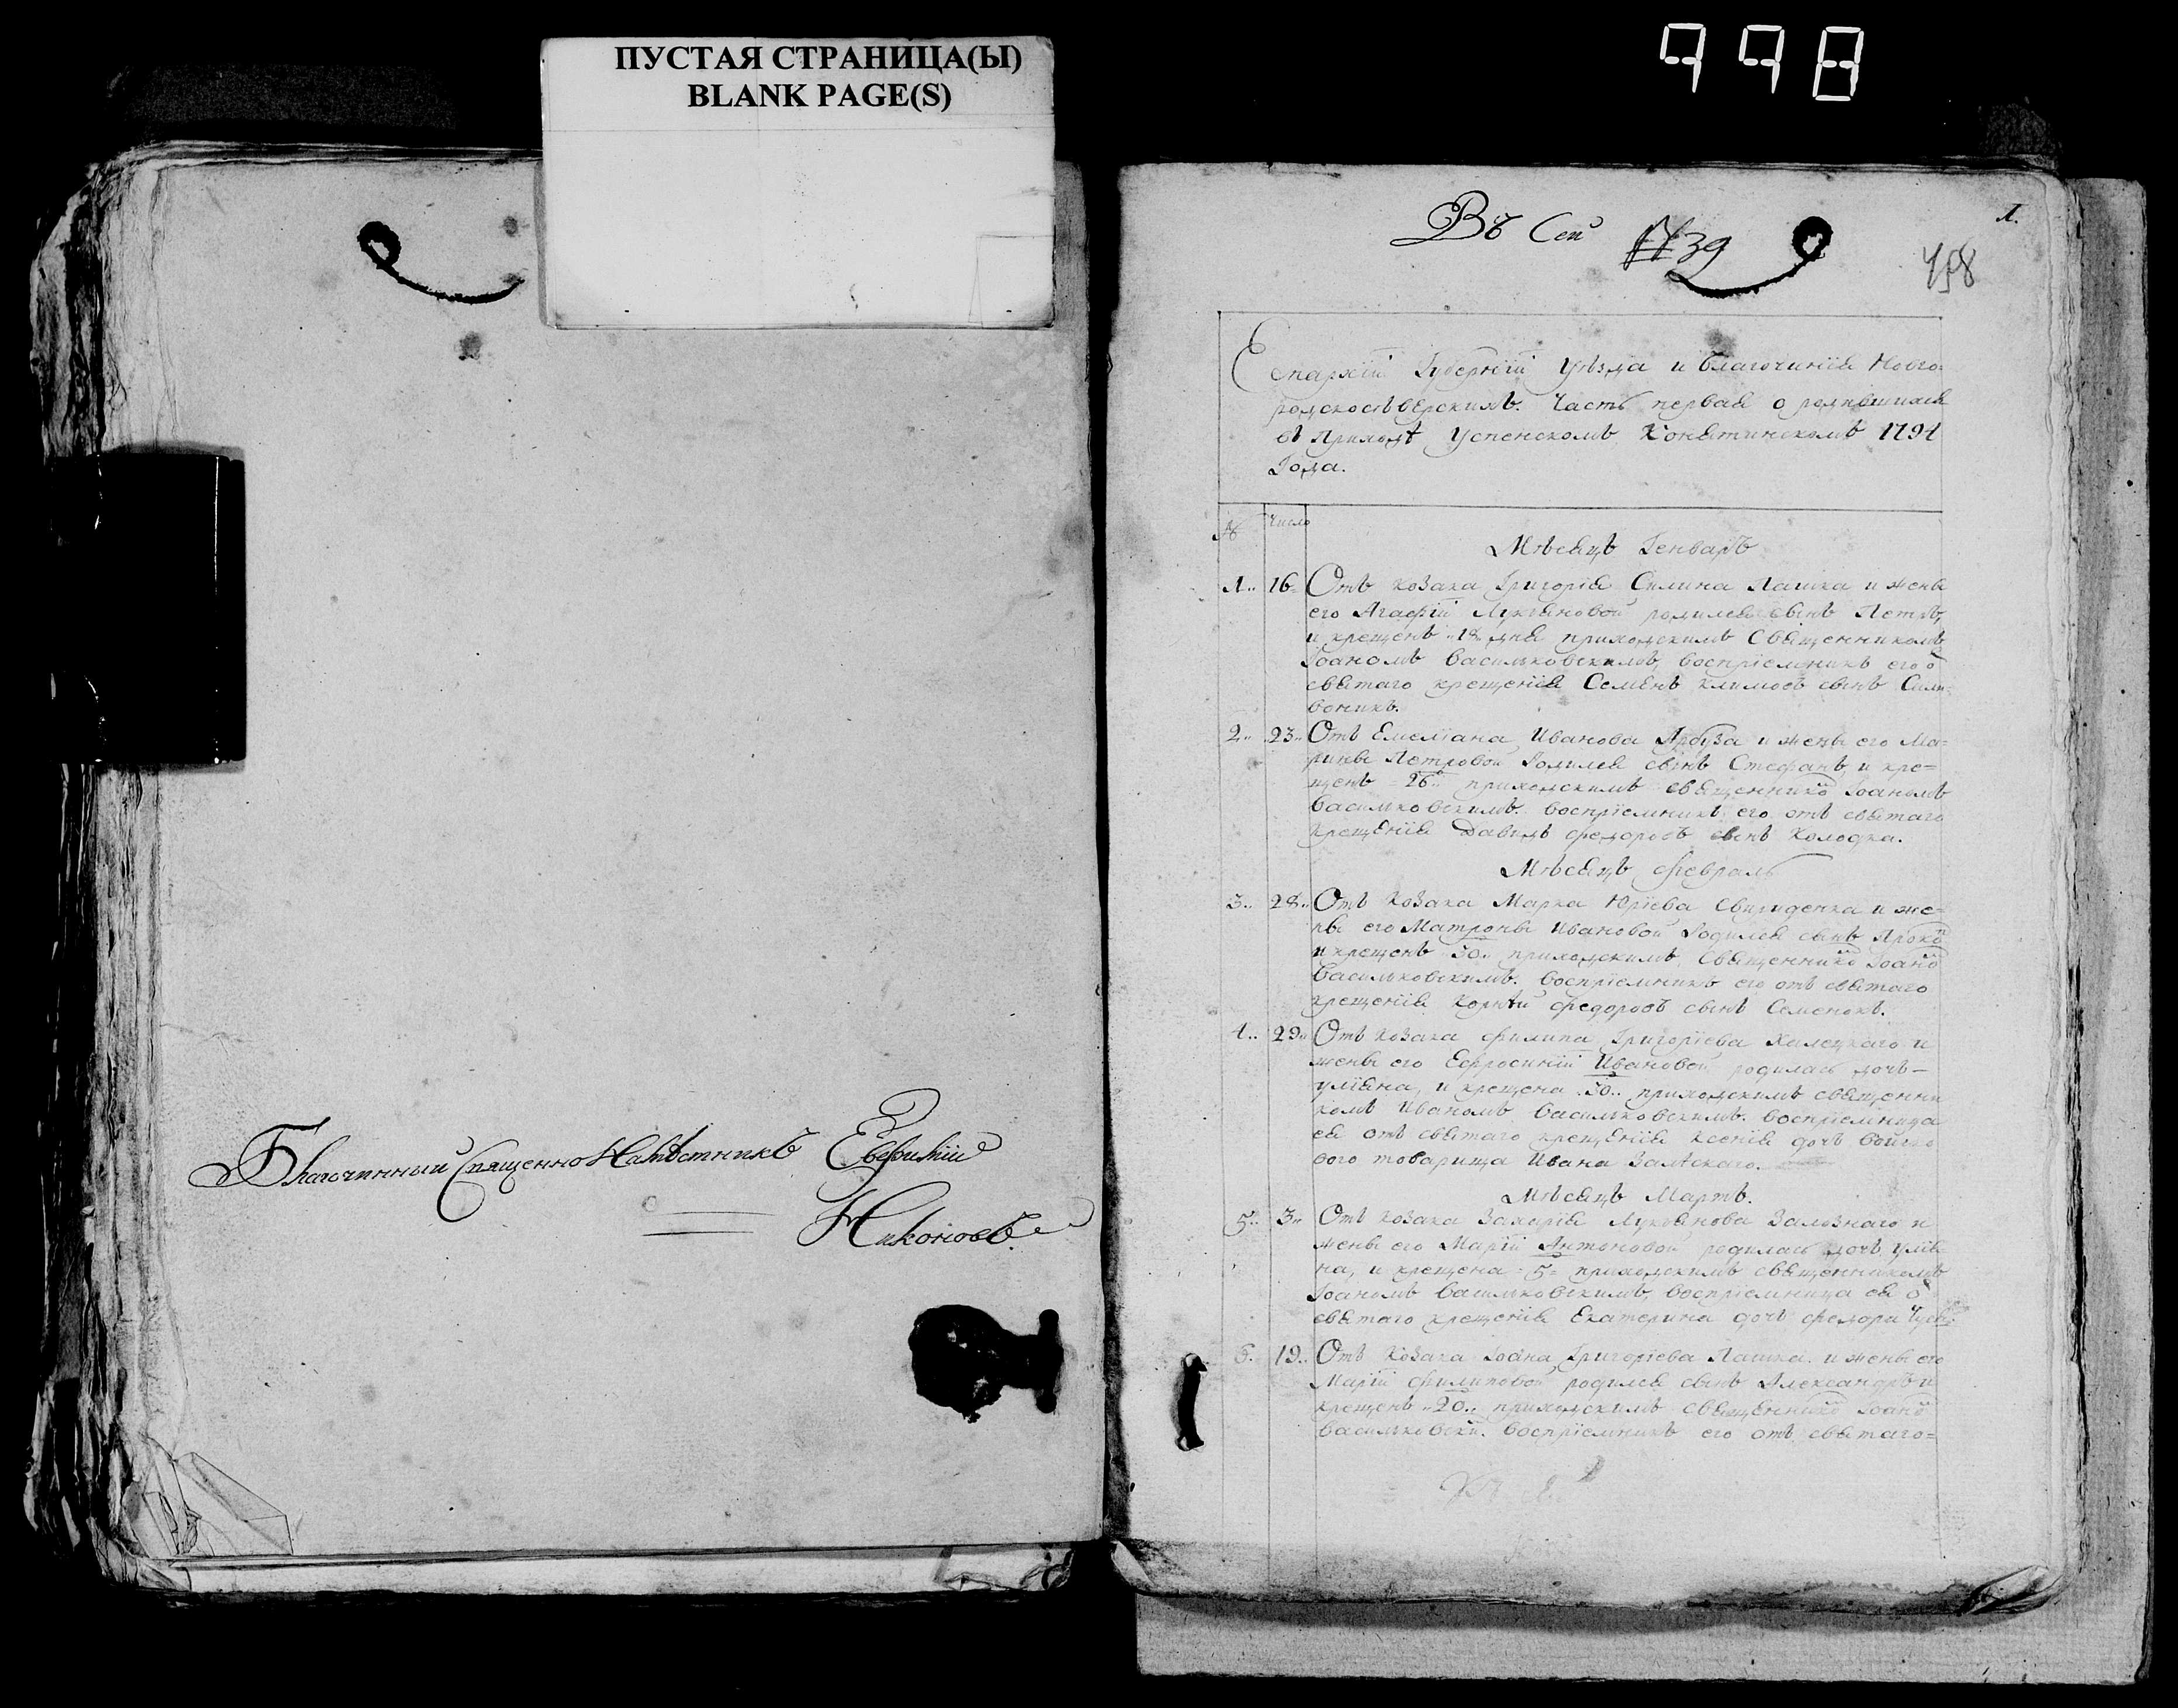 ПУСТАЯ СТРАНИЦА(Ы)
BLANK PAGE(S)
998
Благочинный Священнонаместникъ Евфимий
Никоновъ
Въ Сей № 39
1.
458
Епархіи Губерніи Уѣзда и благочинія Новго-
родскосѣверскихъ. Часть первая о родившихся
въ приходѣ Успенскомъ Конятинскомъ 1794
Года.
№ Число
Мѣсяцъ Генварь
1.. 16. Отъ козака Григорія Силина Пашка и жены
его Агафіи Лукьяновой родился сынъ Петръ,
и крещенъ 18 дня приходскимъ Священникомъ
Іоаномъ Васильковскимъ, воспріемникъ его о
святаго крещенія Семенъ Климовъ сынъ
2.. 23.. Отъ Емеліана Иванова Арбуза и жены его Ма-
рины Петровой Родился сынъ Стефанъ, и кре=
щенъ 26.. приходскимъ священнико Іоаномъ
Васильковскимъ. воспріемникъ его отъ святаго
крещенія Давидъ Федоровъ сынъ Колодка.
Мѣсяцъ Февраль
3.. 28.. Отъ Козака Марка Юріева Свириденка и же=
ны его Матроны Ивановой Родился сынъ Проко
и крещенъ 30.. приходскимъ Священнико Іоано
Васильковскимъ. воспріемникъ его отъ святаго
крещенія Корнѣй Федоровъ сынъ Семенокъ.
4.. 29.. Отъ Козака Филипа Григоріева Халецкаго и
жены его Ефросиніи Ивановой родилась дочь—
уліяна, и крещена 30.. приходскимъ священни
комъ Иваномъ Васильковскимъ. воспріемница
ея отъ святаго крещенія Ксенія дочь Войско
вого товарища Ивана Залѣскаго.
Мѣсяцъ Мартъ.
5.. 3.. Отъ козака Захарія Лукьянова Зализнаго и
жены его Маріи Антоновой родилась дочь Улія
на, и крещена 5= приходскимъ священникомъ
Іоаномъ Васильковскимъ, воспріемница ея о
святаго крещенія Екатерина дочь Федора
6. 19.. Отъ Козака Іоана Григоріева Пашка. и жены его
Маріи Филиповой родился сынъ Александръ и
крещенъ 20.. приходскимъ священнико Іоано
Васильковски. Воспріемникъ его отъ святаго=